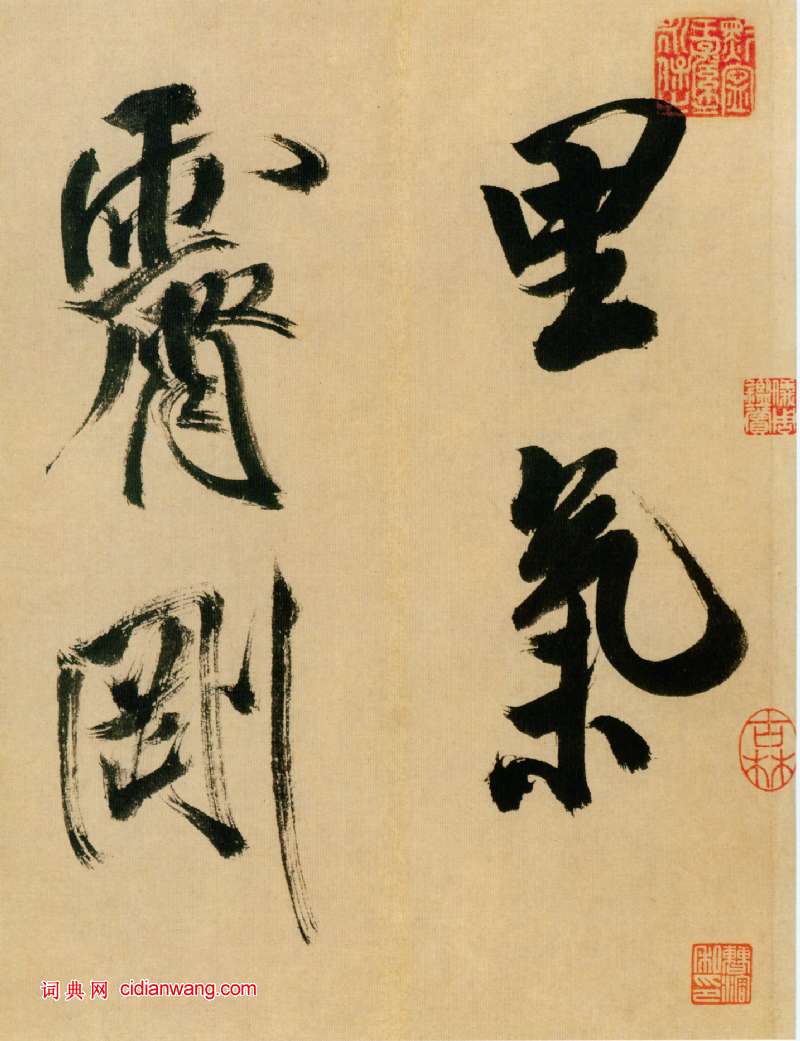 里氣
霽剛
儀周鑑賞
古林
词典网 cidianwang.com